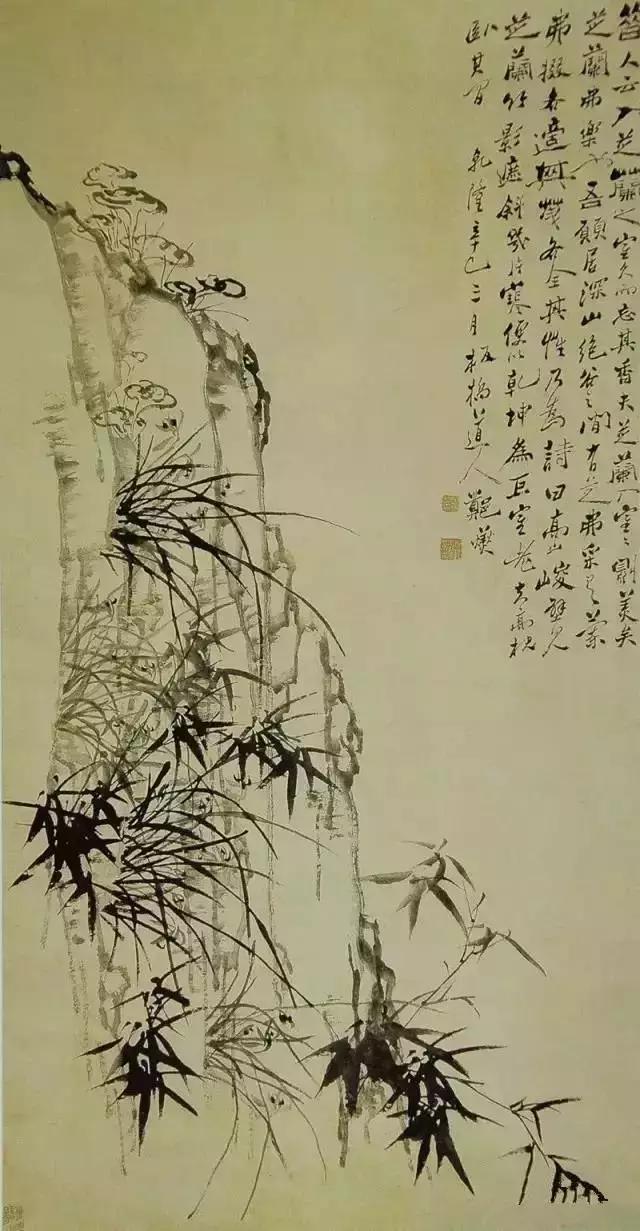 昔人云入芝蘭之室久而忘其香夫芝蘭入室室則美矣
芝蘭弗樂也吾願居深山絕谷之間有芝弗采有蘭
弗掇各適其各全其性乃為詩曰高山峻壁見
芝蘭竹影遮斜幾片寒便以乾坤為巨室老夫高枕
臥其間 乾隆辛巳三月板橋道人鄭燮